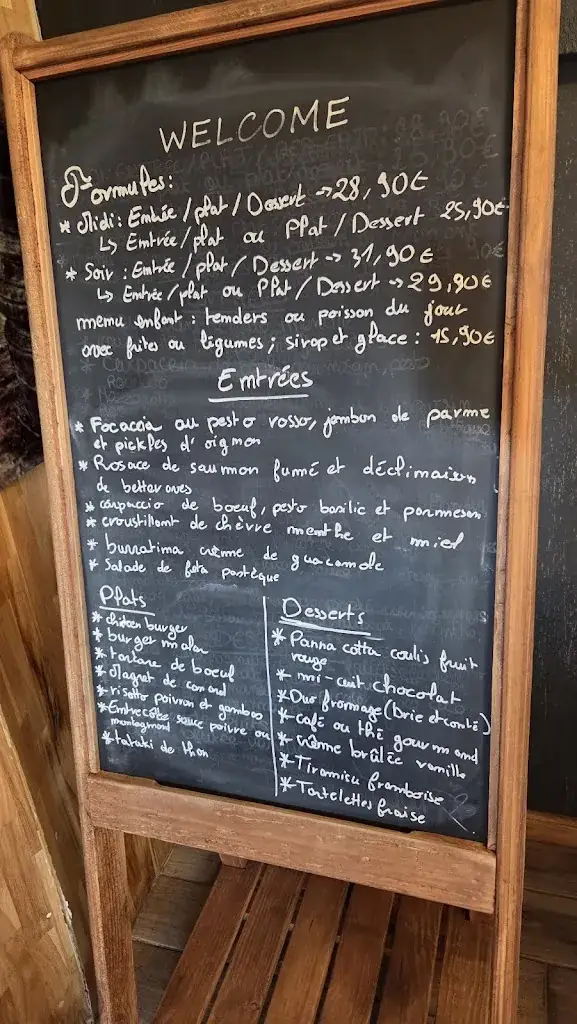 WELCOME
Formules:
* Midi: Entrée/plat/Dessert → 28,90€
↳ Entrée/plat ou Plat/Dessert 25,90€
* Soir: Entrée/plat/Dessert → 31,90€
↳ Entrée/plat ou Plat/Dessert → 29,90€
menu enfant: tenders ou poisson du jour
avec frites ou légumes; sirop et glace: 15,90€
Entrées
* Focaccia au pesto rosso, jambon de parme
et pickles d'oignon
* Rosace de saumon fumé et déclinaison
de betteraves
* carpaccio de boeuf, pesto basilic et parmesan
* croustillant de chèvre menthe et miel
* burratina crème de guacamole
* Salade de feta pastèque
Plats
* chicken burger
* burger
* tartare de boeuf
* Magret de canard
* risotto poivron et gambas
* Entrecôte sauce poivre ou
* tataki de thon
Desserts
* Panna cotta coulis fruit
rouge
* mi-cuit chocolat
* Duo fromage (brie et comté)
* café ou thé gourmand
* crème brûlée vanille
* Tiramisu framboise
* Tartelettes fraise